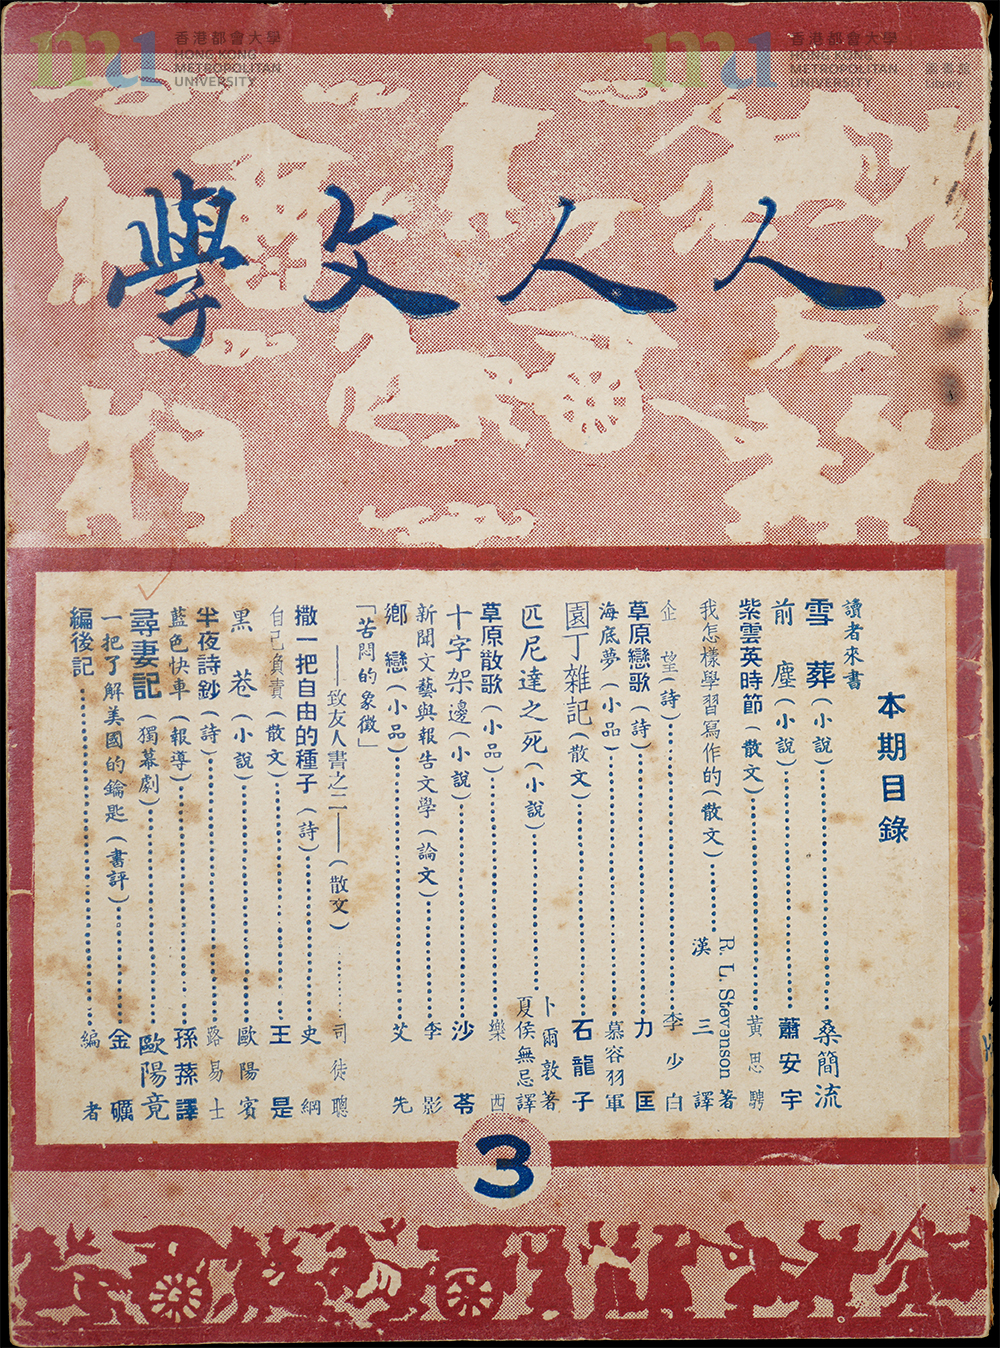 香港都會大學
HONG KONG
METROPOLITAN
UNIVERSITY
香港都會大學
HONG KONG
METROPOLITAN
UNIVERSITY
圖書館
Library
人人文學
本期目錄
讀者來書
雪葬(小說)桑簡流
前塵(小說)蕭安宇
紫雲英時節(散文)黃思騁
我怎樣學習寫作的(散文)R. L. Stevenson著
漢三譯
企望(詩)李少白
草原戀歌(詩)力匡
海底夢(小品)慕容羽軍
園丁雜記(散文)石龍子
匹尼達之死(小說)卜爾敦著
夏侯無忌譯
草原散歌(小品)樂西
十字架邊(小說)沙苓
新聞文藝與報告文學(論文)李影
鄉戀(小品)艾先
「苦悶的象徵」
——致友人書之二——(散文)司徒聰
撒一把自由的種子(詩)史綱
自己負責(散文)王是
黑巷(小說)歐陽賓
半夜詩鈔(詩)路易士
藍色快車(報導)孫蓀譯
尋妻記(獨幕劇)歐陽竟
一把了解美國的鑰匙(書評)金礦
編後記編者
3